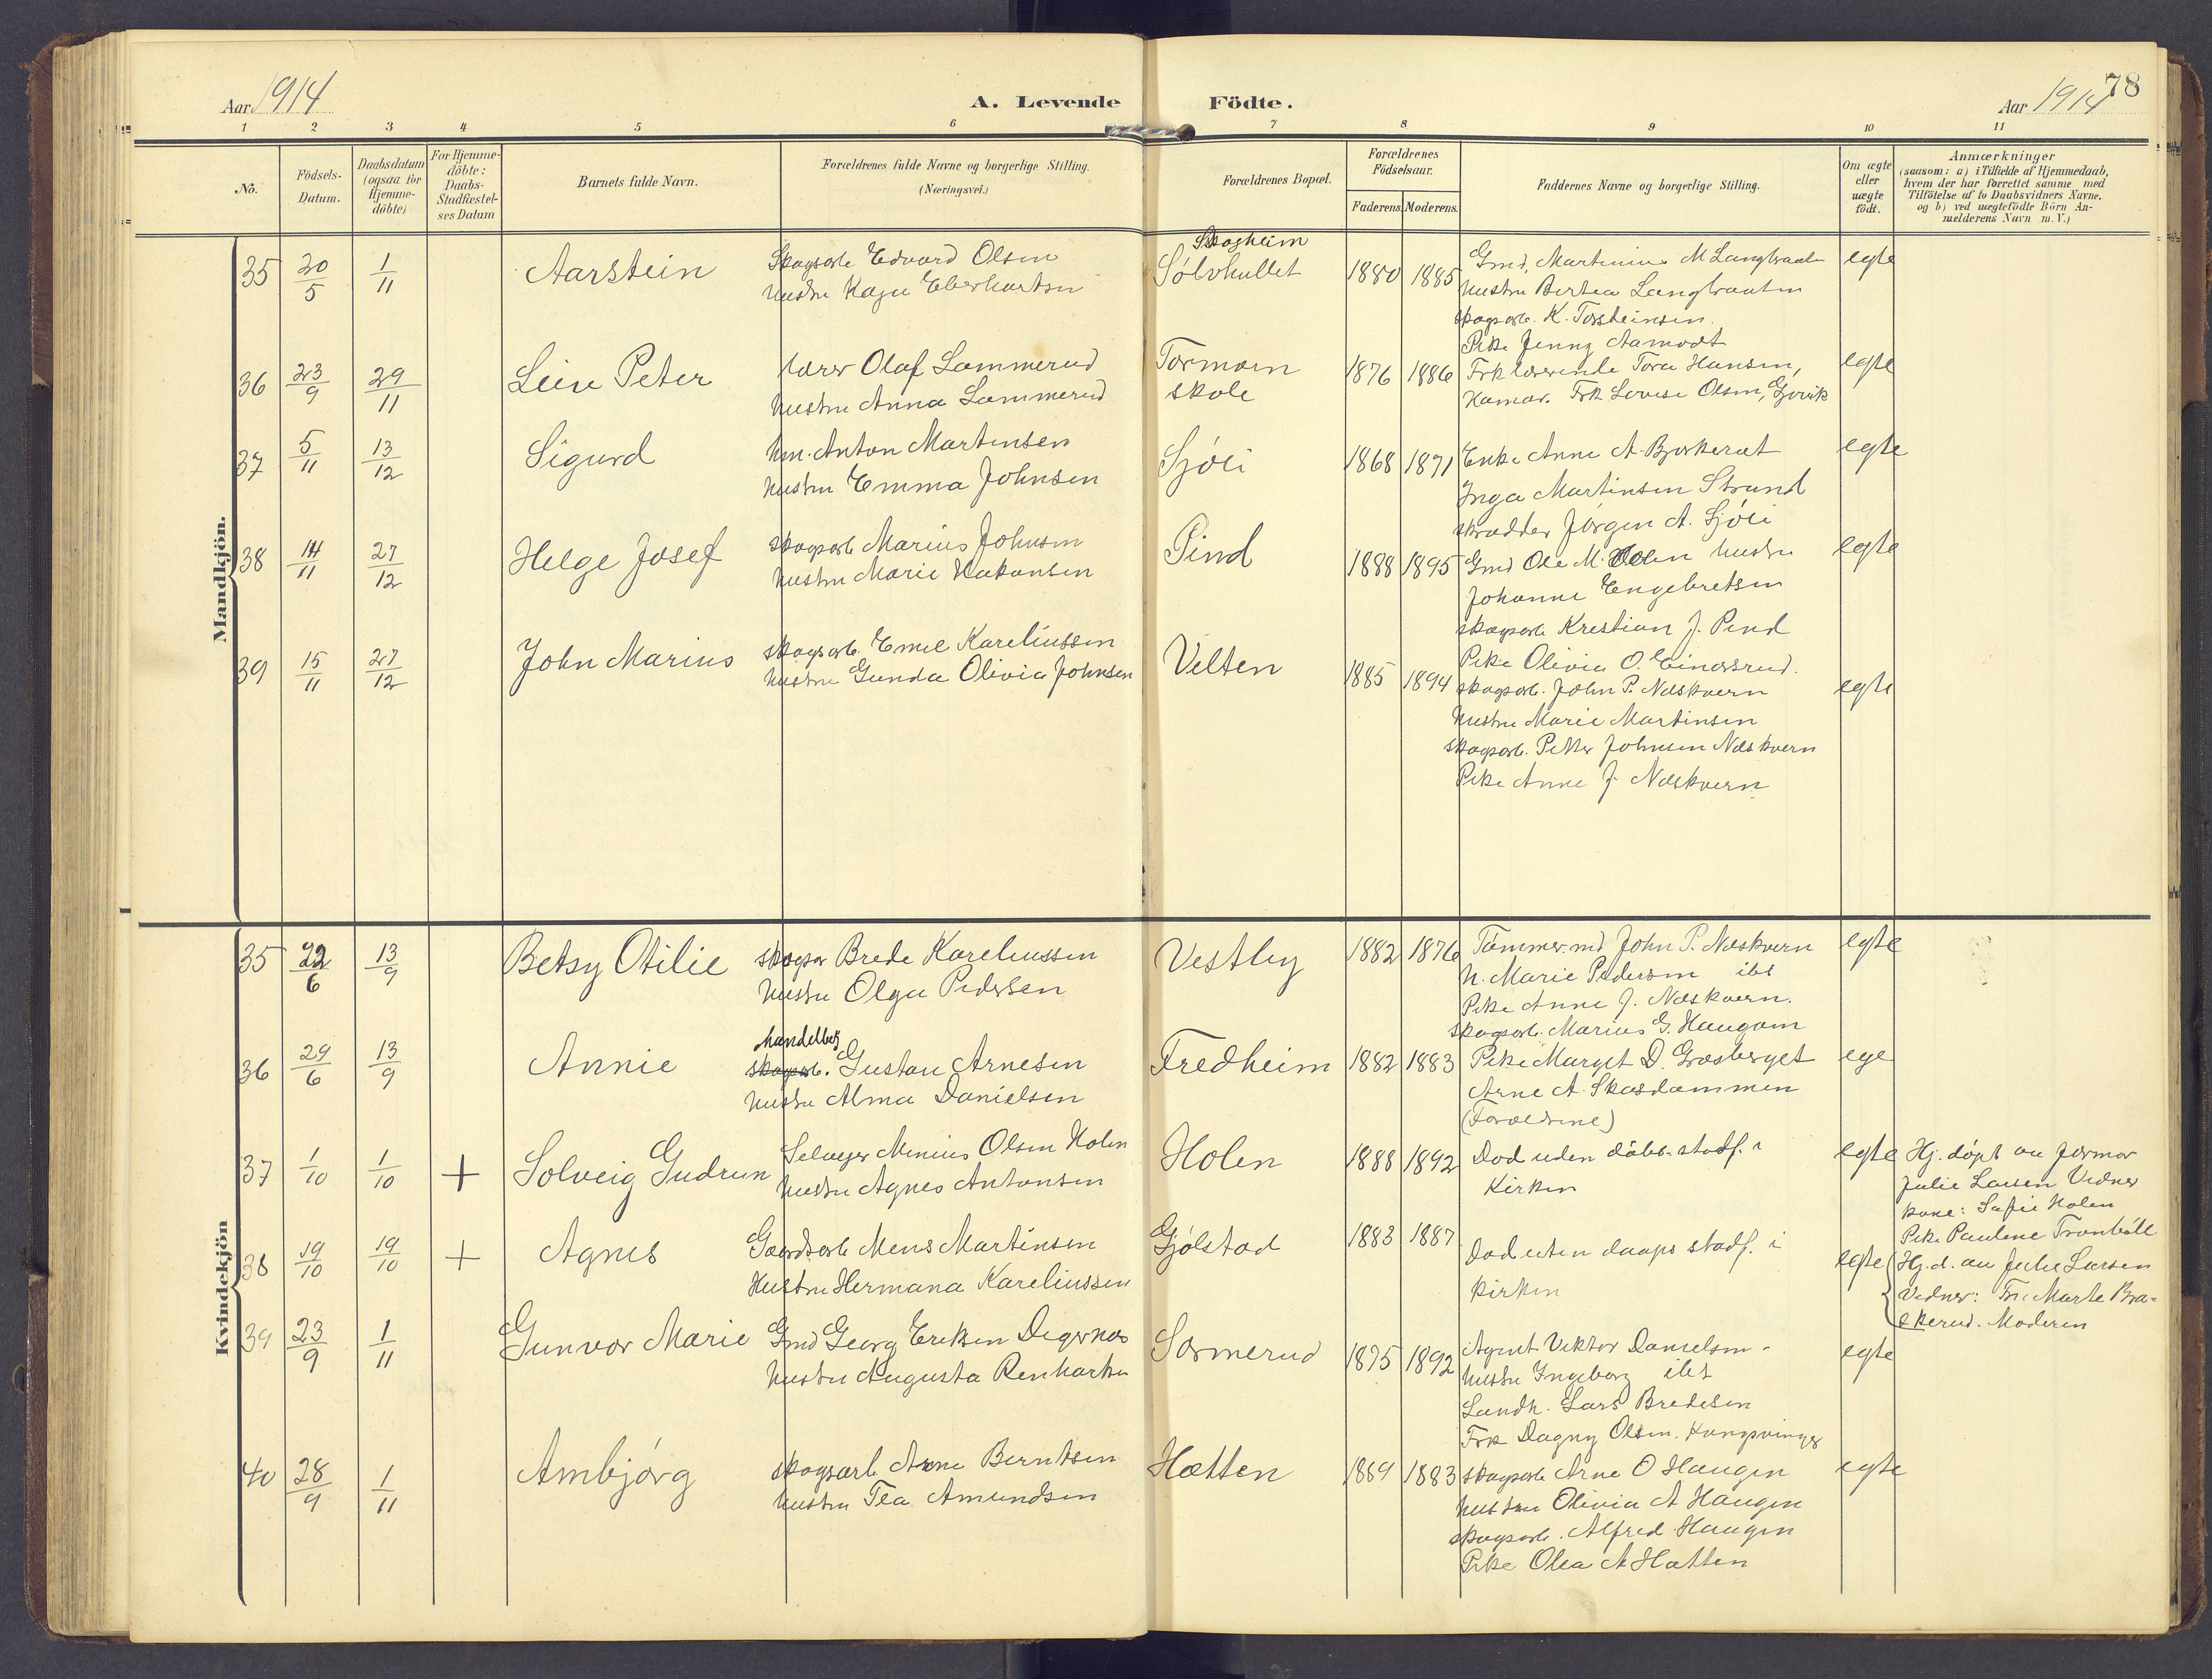 Aar 1914
A. Levende Födte.
Aar 1914
78
1 2 3 4 5 6 7 8 9 10 11
No.
Födsels-Datum.
Daabsdatum (ogsaa for Hjemme-döbte)
For Hjemme-döbte: Daabs-Stadfæstel-ses Datum
Barnets fulde Navn.
Forældrenes fulde Navne og borgerlige Stilling. (Næringsvei.)
Forældrenes Bopæl.
Forældrenes Födselsaar.
Faderens. Moderens.
Faddernes Navne og borgerlige Stilling.
Om ægte eller uægte födt.
Anmærkninger
(saasom: a) i Tilfælde af Hjemmedaab,
hvem der har forrettet samme med
Tilföielse af to Daabsvidners Navne,
og b) ved uægtefödte Börn An-
melderens Navn m. V.)
Mandkjön.
35 20/5 1/11 Aarstein Skogsarb Edvard Olsen Skogheim 1880 1885 Gmd, Martinius M Langbraaten egte
Hustru Kaja Eberhartsen Sølvhullet Hustru Bertea Langbraaten
skogsarb. K. Torsteinsen.
Pike Jenny Aamodt
36 23/9 29/11 Leiv Peter Lærer Olaf Lammerud Tormoen 1876 1886 Frk lærerinde Tora Hansen, egte
Hustru Anna Lammerud skole Hamar. Frk Lovise Olsen, Gjøvik
37 5/11 13/12 Sigurd Hm. Anton Martinsen Sjøli 1868 1871 Enke Anne A. Bjørkerat egte
Hustru Emma Johnsen Inga Martinsen Strand
skrædder Jørgen A. Sjøli
38 14/11 27/12 Helge Josef skogsarb Marius Johnsen Pind 1888 1895 Gmd Ole M. Holen hustru egte
Hustru Marie Hakonsen Johanne Engebretsen
skogsarb Krestian J. Pind
Pike Olivia O. Einarsrud.
39 15/11 27/12 John Marius skogsarb. Emil Kareliussen Velten 1885 1894 skogsarb. John P. Næskvern egte
Hustru Gunda Olivia Johnsen Hustru Marie Martinsen
skogsarb. Petter Johnsen Næskvern
Pike Anne J. Næskvern
Kvindekjön
35 22/6 13/9 Betsy Otilie skogsar Brede Kareliussen Vestby 1882 1876 Tömmer.md John P. Næskvern egte
Hustru Olga Pedersen H. Marie Pedersen ibd
Pike Anne J. Næskvern.
skogsarb. Marius G. Haugom
36 29/6 13/9 Annie handelbetj skogsarb. Gustav Arnesen Fredheim 1882 1883 Pike Margit D. Græsberget ege
Hustru Alma Danielsen Arne A. Skasdammen
(Forældrene)
37 1/10 1/10 + Solveig Gudrun Selveger Menius Olsen Holen Holen 1888 1892 Død uden dåbs-stadf. i egte Hj. døpt av jormor
Hustru Agnes Antonsen Kirken Julie Larsen Vidner
kone: Safie Holen
Pike Paulene Tranböll
38 19/10 19/10 + Agnes Gaardsarb Mens Martinsen Gjølstad 1883 1887 Død uten daaps stadf. i egte Hj. d. av Julie Larsen
Hustru Hermana Kareliussen kirken Vidner: Fru Marte Bra=
ekerud. Moderen
39 23/9 1/11 Gunvor Marie Gmd Georg Eriksen Digernes Sormerud 1875 1892 Agent Viktor Danielsen egte
Hustru Augusta Renhartsen Hustru Ingeborg ibd
Landh. Lars Bredesen
Frk Dagny Olsen. Kongsvinger
40 28/9 1/11 Arnbjörg skogsarb Arne Berntsen Hætten 1889 1883 skogsarb Arne O Haugen egte
Hustru Tea Amundsen Hustru Olivia A Haugen
skogsarb. Alfred Haugen
Pike Olea A Hætten